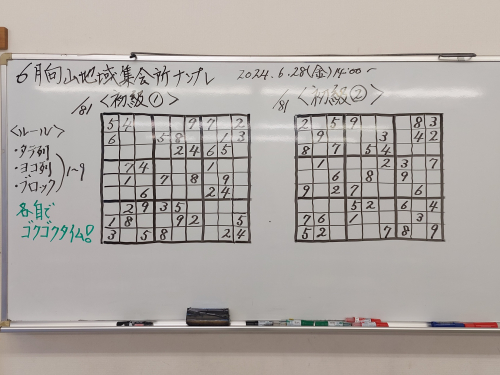 6月向山地域集会所ナンプレ 2024.6.28(金)14:00~
/81 <初級①>
/81 <初級②>
<ルール>
・タテ列
・ヨコ列
・ブロック
1~9
各自で
ゴクゴクタイム!
5 4 9 7 2
6 5 8 1 3
2 4 6 5
7 4 1
1 7 8 9
6 2 4
2 9 3 5
1 8 9 2 5
3 5 8 2 4
2 5 9 8 3
9 3 4 2
8 7 5 4
1 2 3 7
6 8 9
9 2 7 6
5 2 6 4
7 6 1 3
5 2 7 8 9